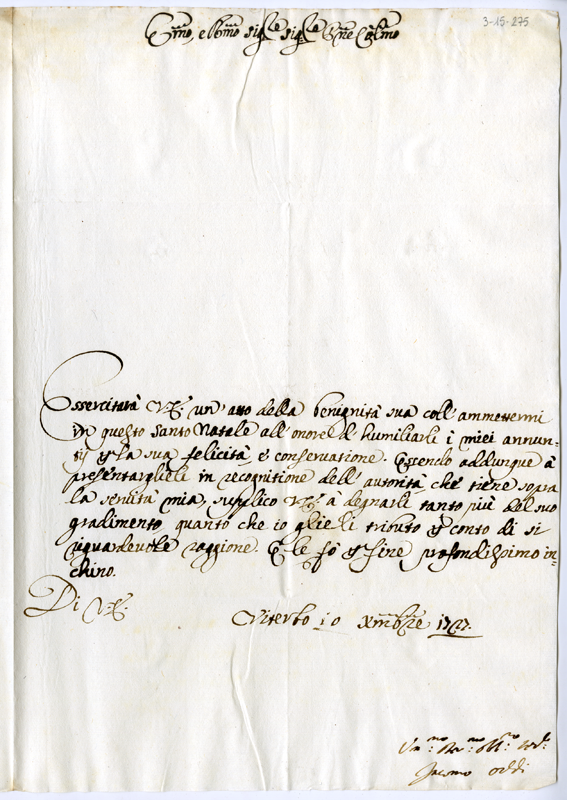 3-15-275
Em̃o, e Rm̃o Sig.re Sig.re Pr̃ne Col̃mo
Essercitarà V.E. un atto della benignità sua coll' ammettermi
in questo Santo Natale all' onore d' humiliarle i miei annun-
tij p la sua felicità, e conservatione. Essendo addunque à
presentarglieli in recognitione dell' autorità che tiene sopra
la servità mia, supplico V.E. à degnarli tanto più del suo
gradimento, quanto che io glie li tributo p conto di si
riguardevole raggione. E le fò p fine profondissimo in-
chino.
Di V.E.
Viterbo 10 Xmbre 1727.
Jacomo Oddi